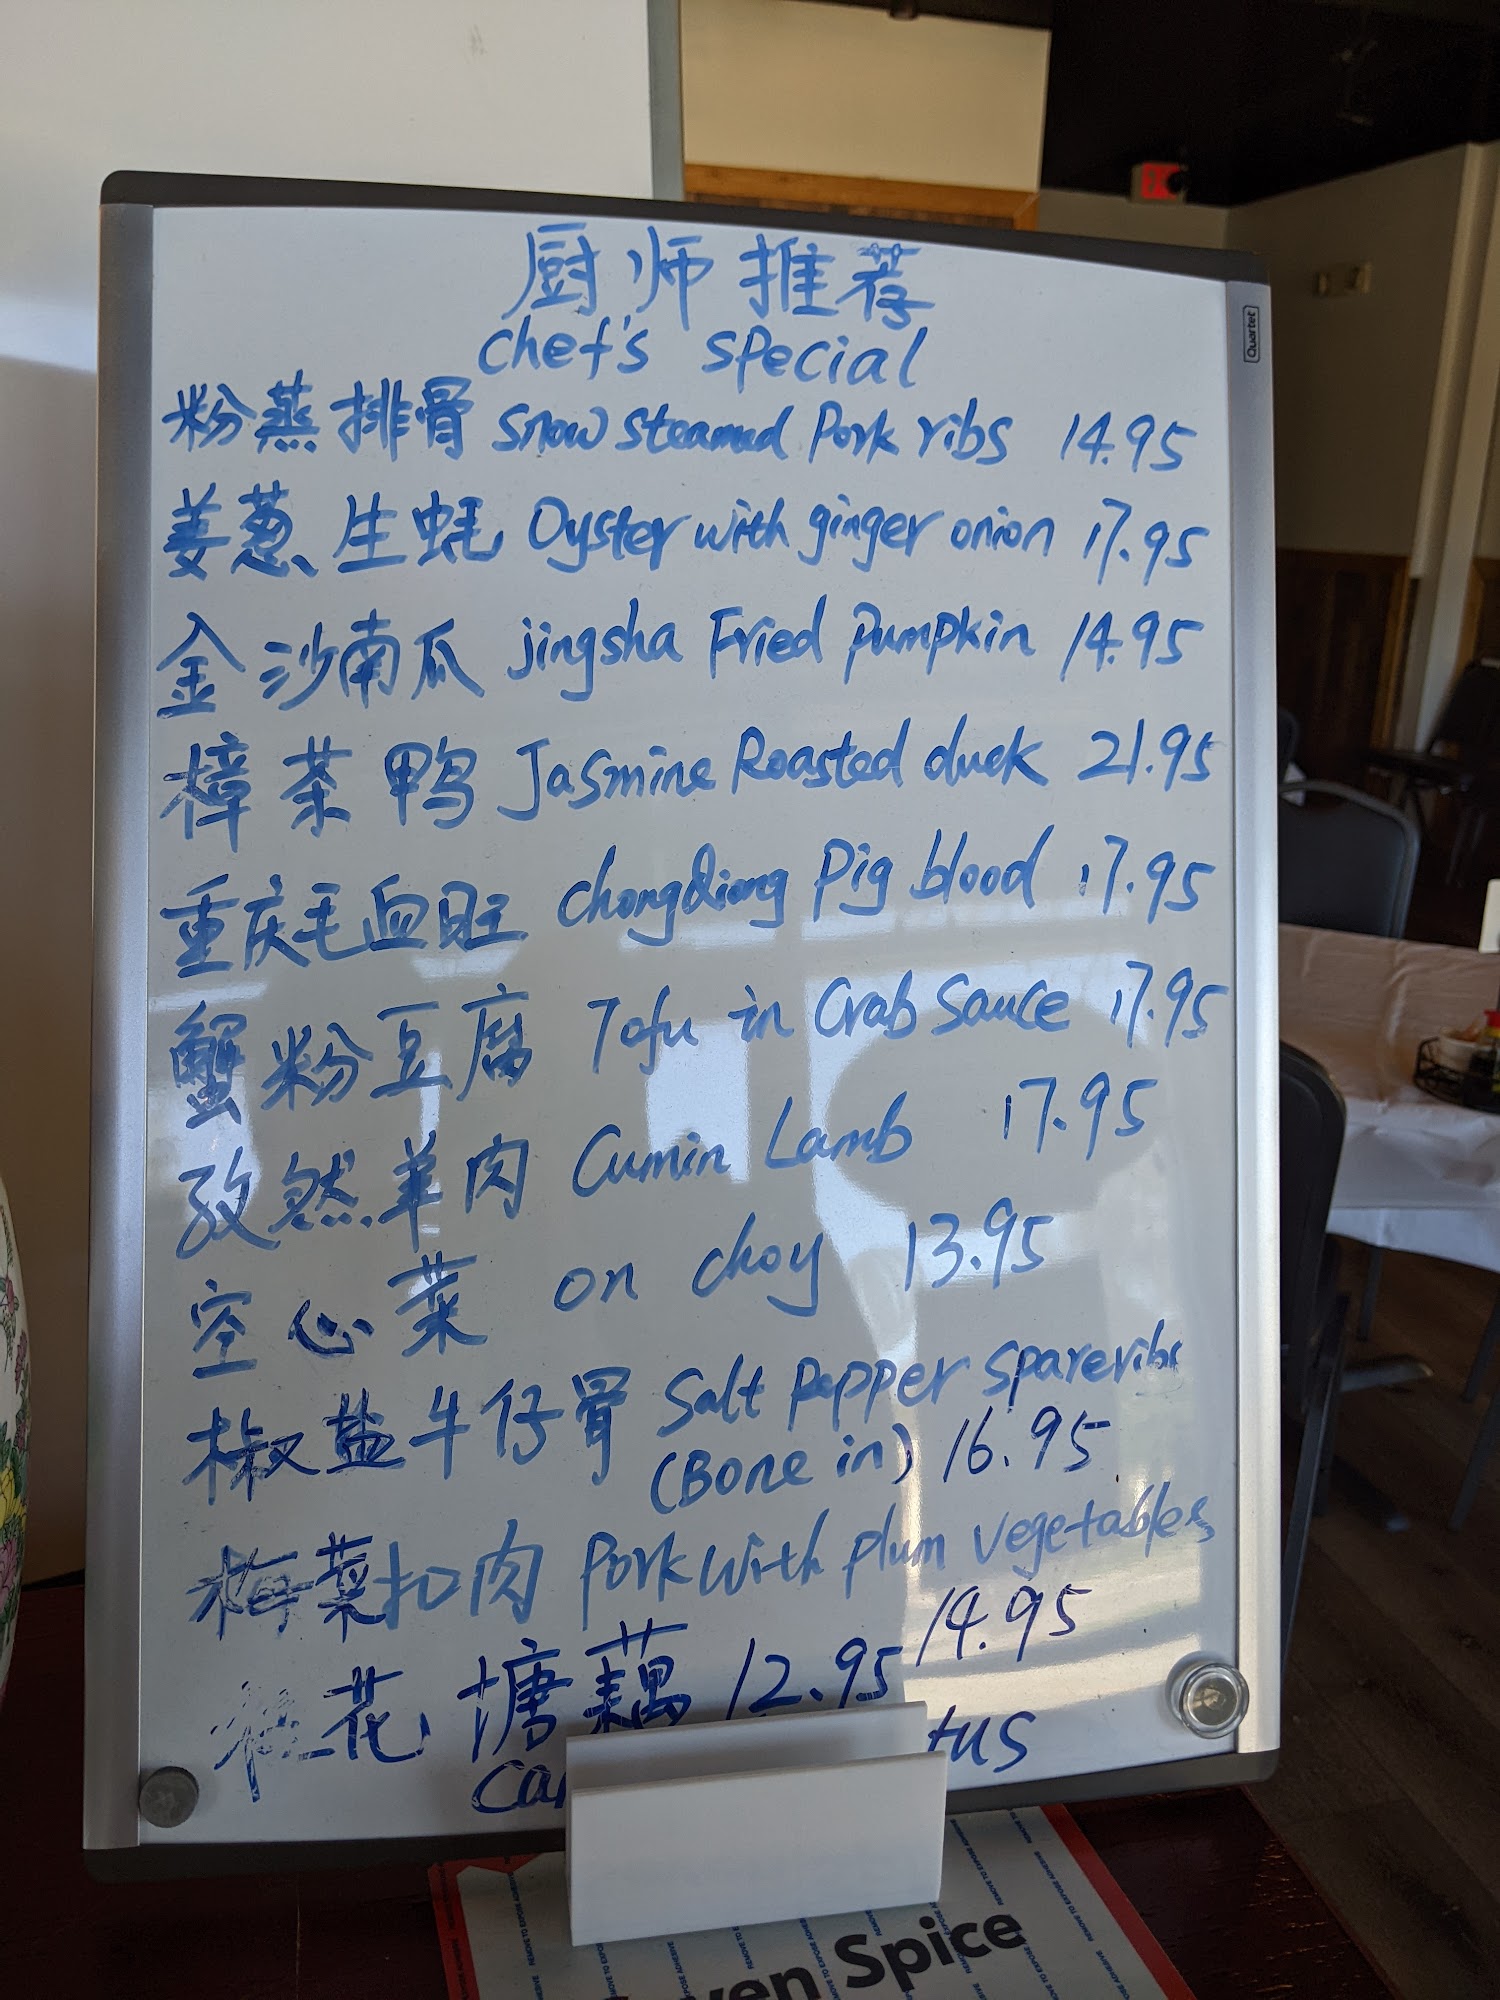 厨师推荐
Chef's Special
粉蒸排骨 Snow Steamed Pork ribs 14.95
姜葱生蚝 Oyster with ginger onion 17.95
金沙南瓜 jingsha Fried Pumpkin 14.95
樟茶鸭 Jasmine Roasted duck 21.95
重庆毛血旺 Chongqiong Pig blood 17.95
蟹粉豆腐 Tofu in Crab Sauce 17.95
孜然羊肉 Cumin Lamb 17.95
空心菜 on choy 13.95
椒盐牛仔骨 Salt Pepper Spareribs
(Bone in) 16.95
梅菜扣肉 Pork with plum vegetables
14.95
桂花塘藕 12.95
Can tus
Quartet
ven Spice
REMOVE TO EXPOSE ADHESIVE